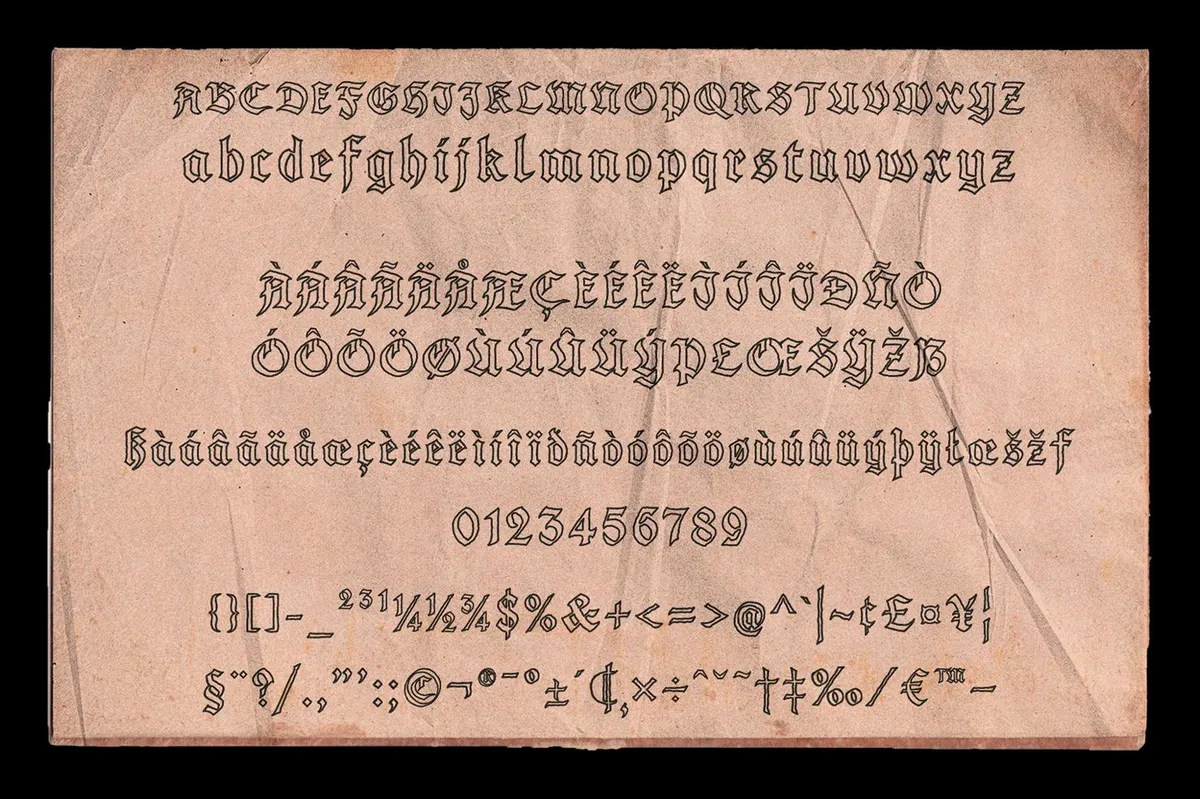 ABCDEFGHIJKLMNOPQRSTUVWXYZ
abcdefghijklmnopqrstuvwxyz
ÀÁÂÃÄÅÆÇÈÉÊËÌÍÎÏÐÑÒ
ÓÔÕÖØÙÚÛÜÝÞŁŒŠŸŽß
ßàáâãäåæçèéêëìíîïðñòóôõöøùúûüýþÿłœšžf
0123456789
{}[]-_²³¹¼½¾$%&+<=>@^`|~¢£¤¥¦
§¨?/.,”’:;©¬®¯º±´₵¸×÷ˆˇ˜†‡‰⁄€™–